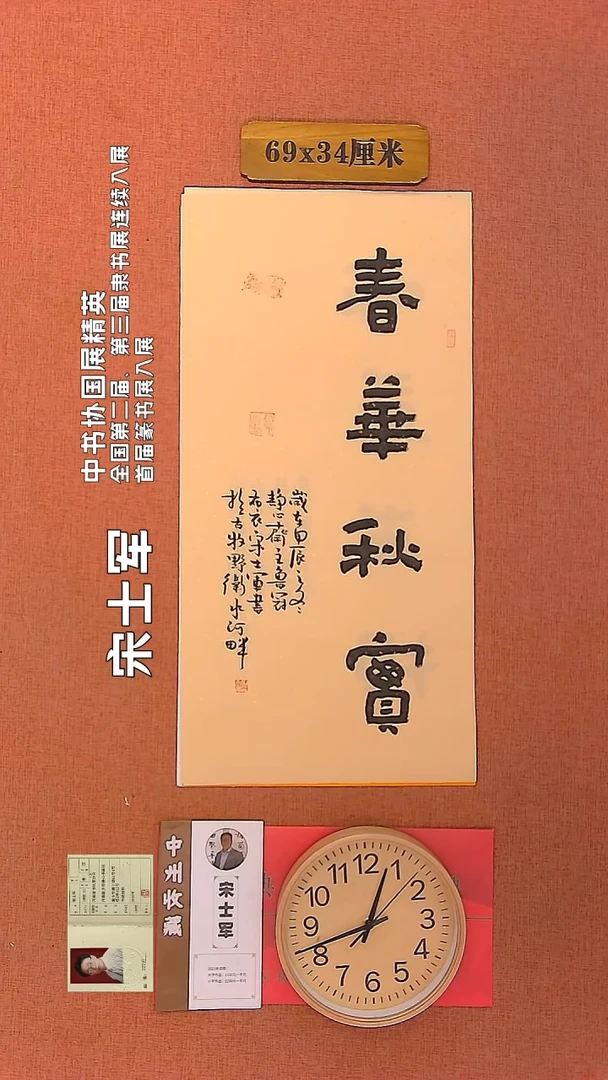 69x34厘米
春華秋實
歲在甲辰之冬
静心齋主魯冠
布衣宋士軍書
於古牧野衛水河畔
中书协国展精英
全国第二届、第三届隶书展连续入展
首届篆书展入展
宋士军
宋士軍
12
1
2
3
4
5
6
7
8
9
10
11